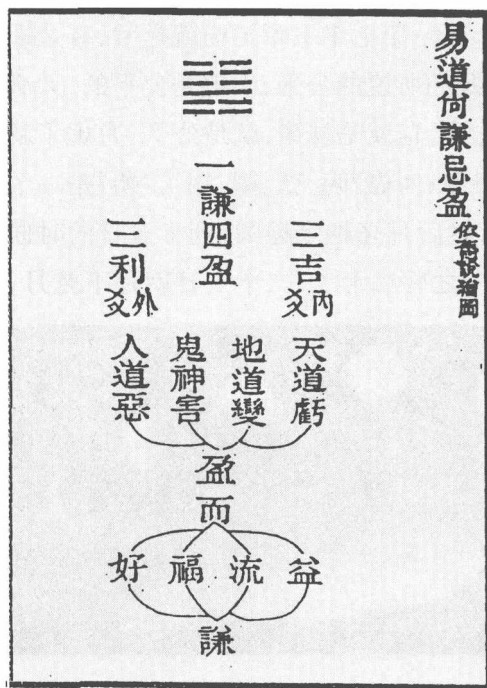 易道尚謙忌盈
說繪圖
一謙四盈
三吉
內爻
三利
外爻
天道虧
地道變
鬼神害
人道惡
盈而
益
流
福
好
謙